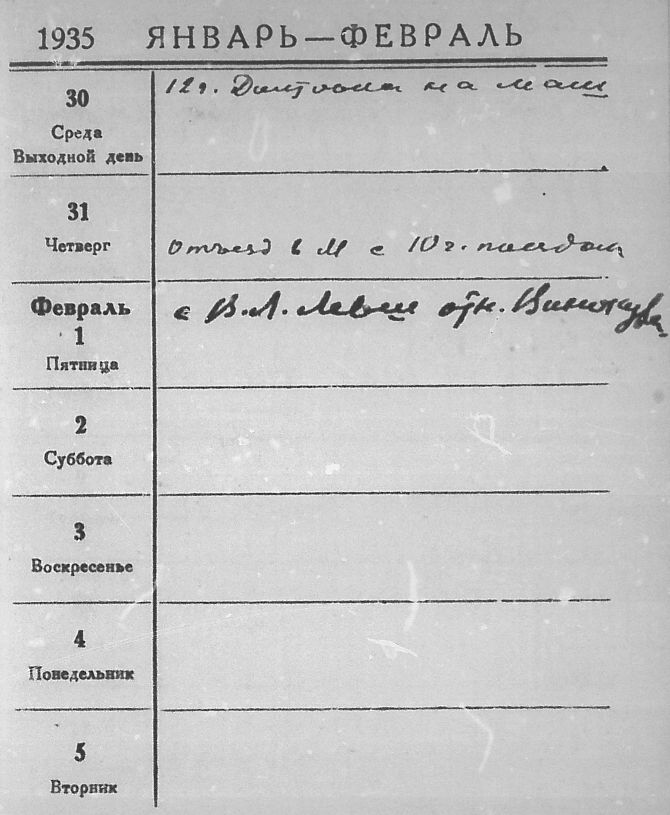 1935 ЯНВАРЬ—ФЕВРАЛЬ
30
Среда
Выходной день
12 ч. на
31
Четверг
Отъезд в М с 10 ч. поездом
Февраль
1
Пятница
с В.Л. отн.
2
Суббота
3
Воскресенье
4
Понедельник
5
Вторник